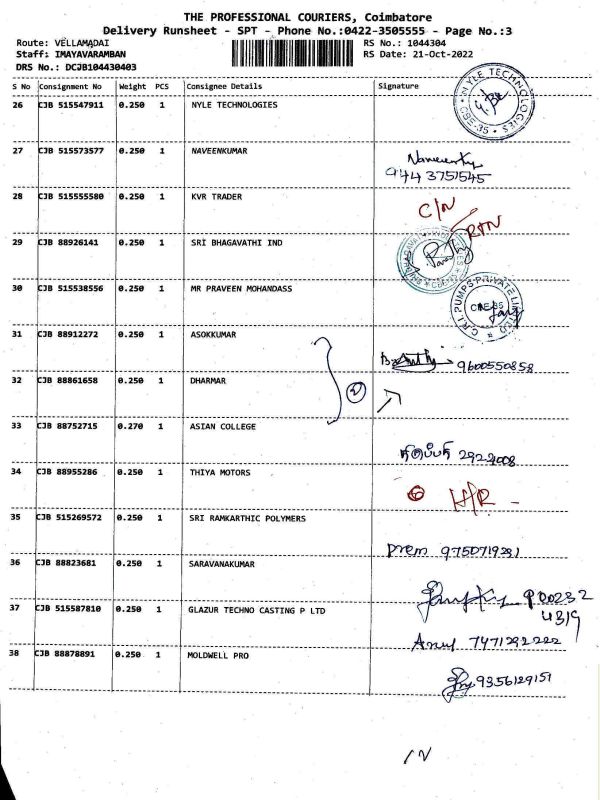 THE PROFESSIONAL COURIERS, Coimbatore
Delivery Runsheet - SPT - Phone No.:0422-3505555 - Page No.:3
Route: VELLAMADAI
RS No.: 1044304
Staff: IMAYAVARAMBAN
RS Date: 21-Oct-2022
DRS No.: DCJB104430403
S No Consignment No Weight PCS Consignee Details Signature
26 CJB 515547911 0.250 1 NYLE TECHNOLOGIES
NYLE TECHNOLOGIES CBE-35
27 CJB 515573577 0.250 1 NAVEENKUMAR
9443751545
28 CJB 515555580 0.250 1 KVR TRADER
C/N
RTN
29 CJB 88926141 0.250 1 SRI BHAGAVATHI IND
30 CJB 515538556 0.250 1 MR PRAVEEN MOHANDASS
C.R.I. PUMPS PRIVATE LIMITED CBE-35
31 CJB 88912272 0.250 1 ASOKKUMAR
9600550858
32 CJB 88861658 0.250 1 DHARMAR
33 CJB 88752715 0.270 1 ASIAN COLLEGE
34 CJB 88955286 0.250 1 THIYA MOTORS
35 CJB 515269572 0.250 1 SRI RAMKARTHIC POLYMERS
Prem
36 CJB 88823681 0.250 1 SARAVANAKUMAR
37 CJB 515587810 0.250 1 GLAZUR TECHNO CASTING P LTD
7471292222
38 CJB 88878891 0.250 1 MOLDWELL PRO
9356129151